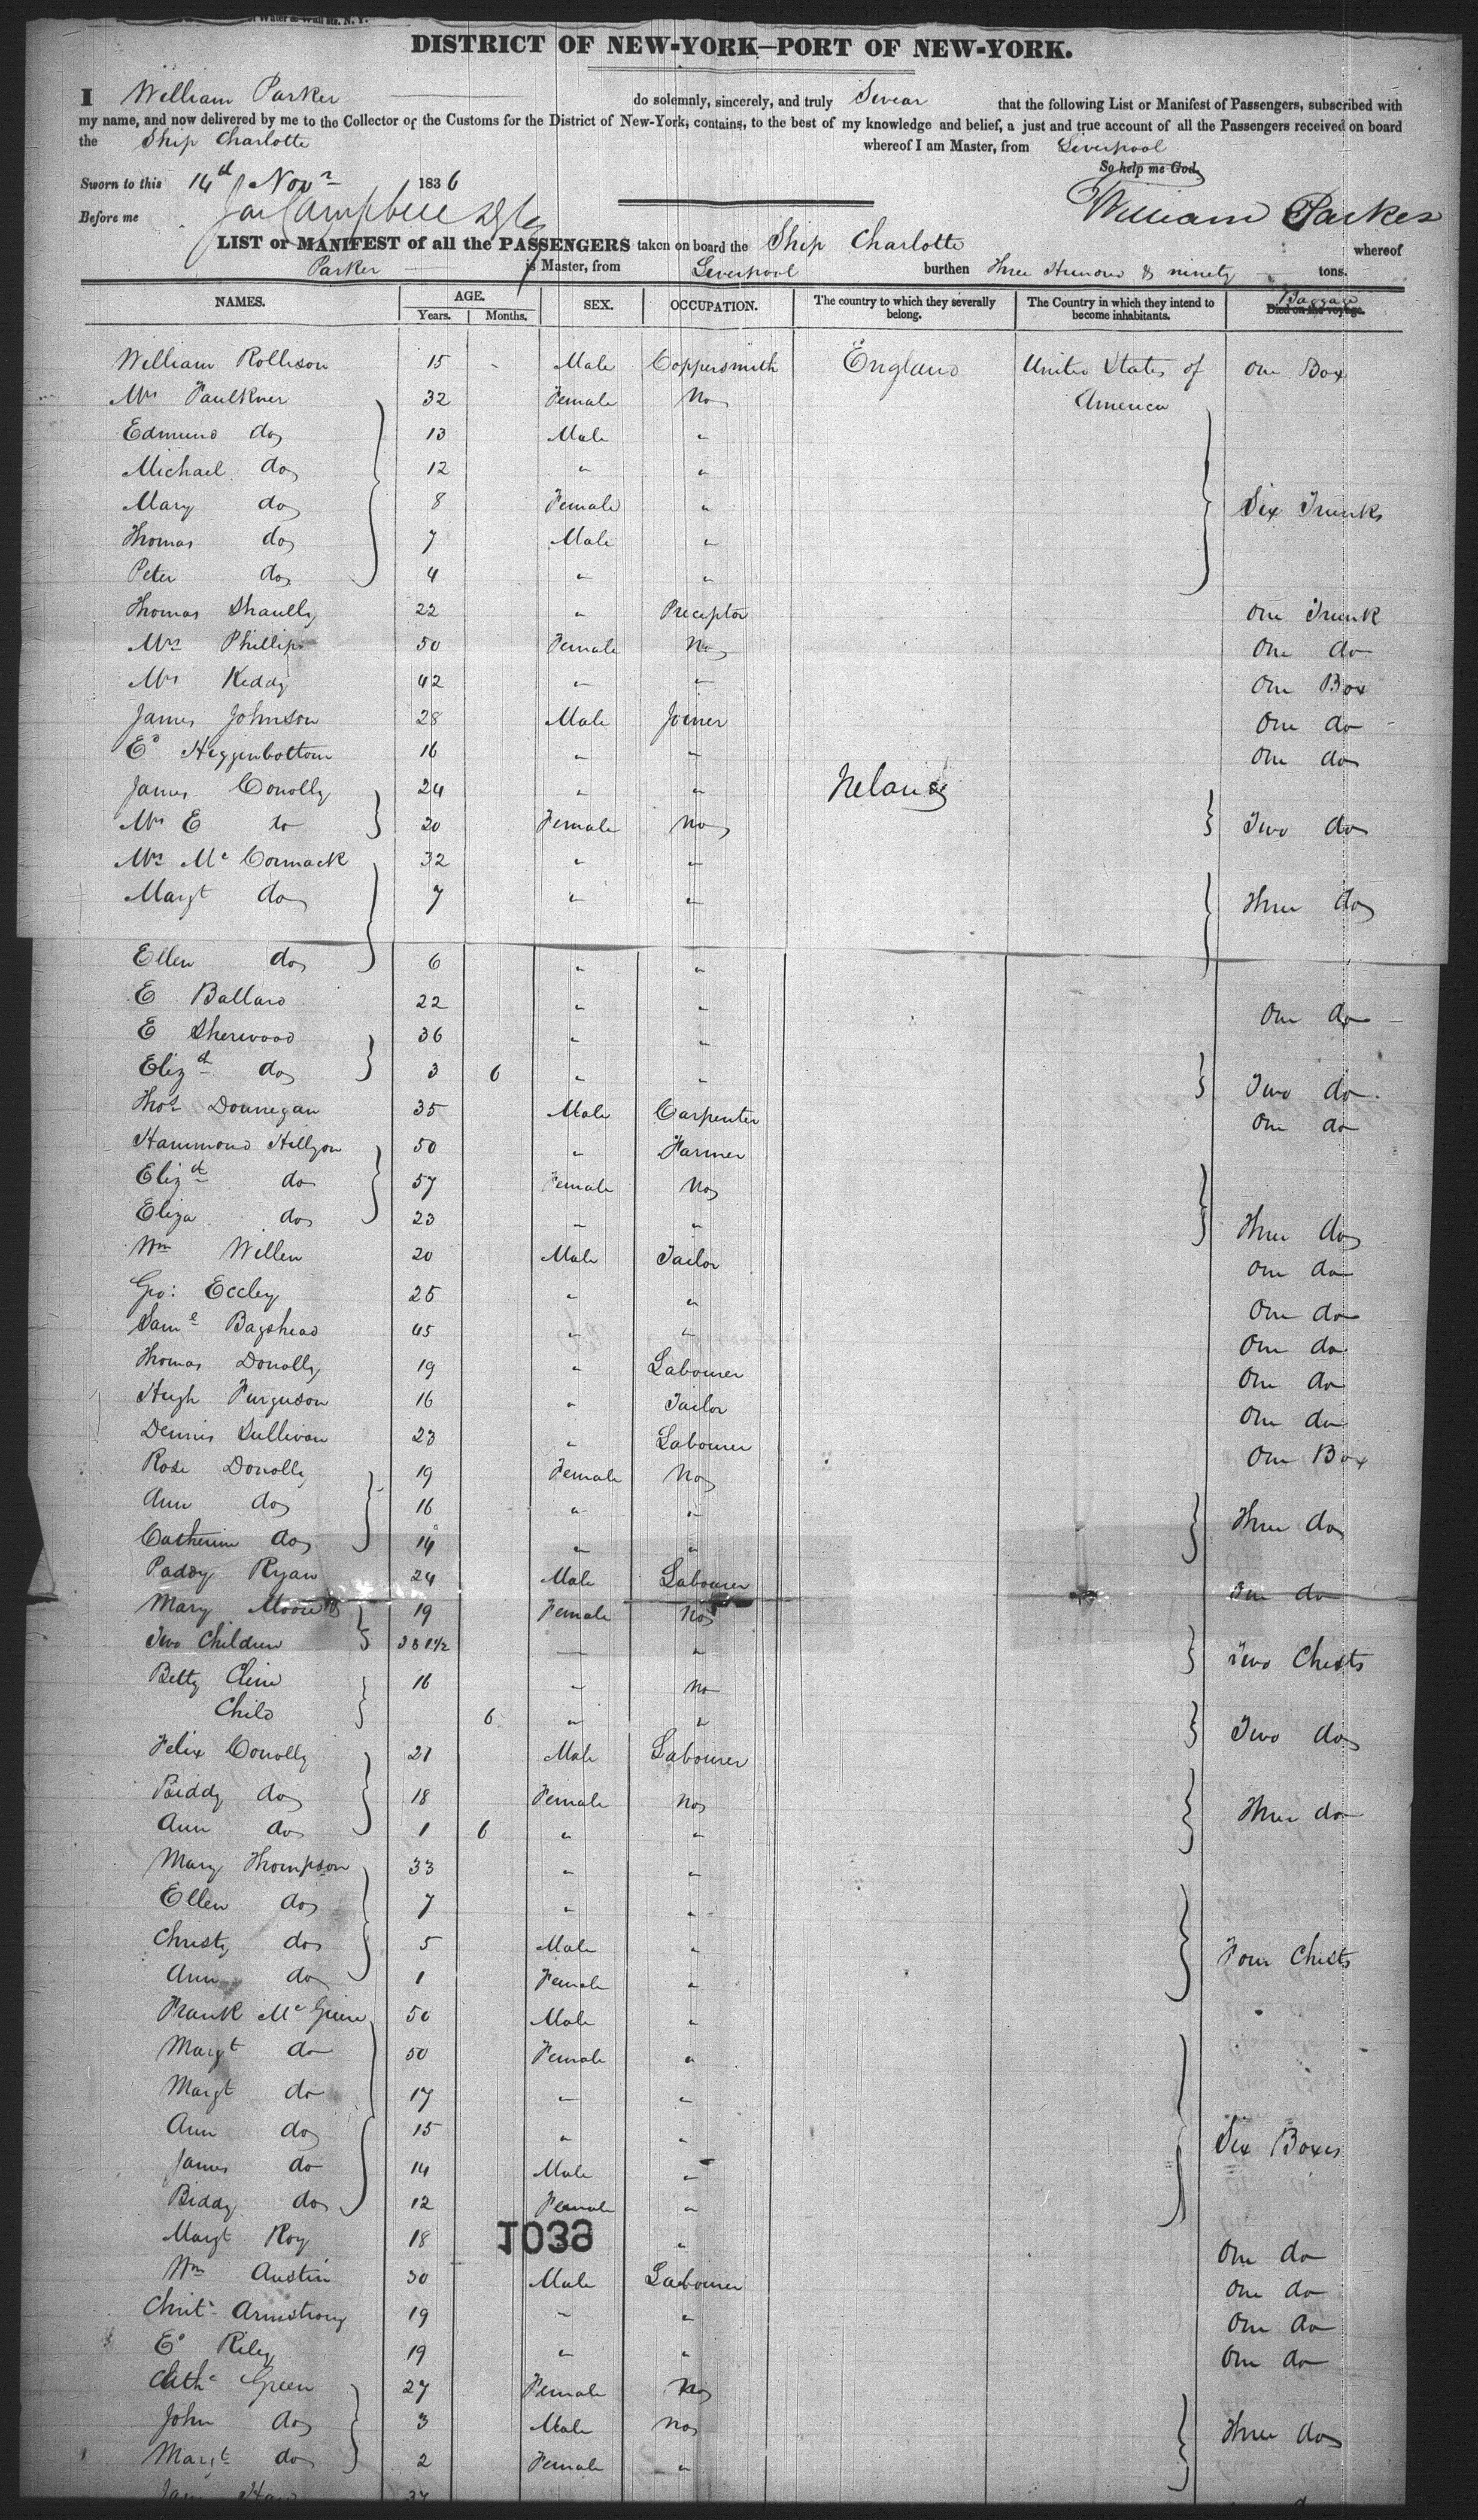 DISTRICT OF NEW-YORK—PORT OF NEW-YORK.
I William Parker do solemnly, sincerely, and truly Swear that the following List or Manifest of Passengers, subscribed with
my name, and now delivered by me to the Collector of the Customs for the District of New-York, contains, to the best of my knowledge and belief, a just and true account of all the Passengers received on board
the Ship Charlotte whereof I am Master, from Liverpool
So help me God.
Sworn to this 14th Novr 1836
Before me Campbell William Parker
LIST or MANIFEST of all the PASSENGERS taken on board the Ship Charlotte whereof
Parker is Master, from Liverpool burthen Three Hundred & ninety tons.
NAMES. AGE. Years. Months. SEX. OCCUPATION. The country to which they severally belong. The Country in which they intend to become inhabitants. Baggage Died on the voyage.
William Rollison 15 - Male Coppersmith England United States of One Box
Mrs Faulkner 32 Female No America
Edmund do 13 Male "
Michael do 12 " "
Mary do 8 Female " Six Trunks
Thomas do 7 Male "
Peter do 4 " "
Thomas 22 " Preceptor One Trunk
Mrs Phillips 50 Female No One do
Mrs Keddy 42 " " One Box
James Johnson 28 Male Joiner One do
Ed Higginbottom 16 " " One do
James Conolly 24 " " Ireland
Mrs E do 20 Female No Two do
Mrs McCormack 32 " "
Margt do 7 " " Three do
Ellen do 6 " "
E Ballard 22 " " One do
E Sherwood 36 " "
Elizth do 3 6 " " Two do
Thos Donnegan 35 Male Carpenter One do
Hammond 50 " Farmer
Elizth do 57 Female No
Eliza do 23 " " Three do
Wm Willen 20 Male Tailor One do
Geo: Eccley 25 " " One do
Saml Bagshead 45 " " One do
Thomas Donolly 19 " Labourer One do
Hugh Furguson 16 " Tailor One do
Dennis Sullivan 23 " Labourer One Box
Rose Donolly 19 Female No
Ann do 16 " " Three do
Catherine do 14 " "
Paddy Ryan 24 Male Labourer One do
Mary Moore 19 Female No
Two Children 3 & 1½ — " Two Chests
Betty Cline 16 " No
Child 6 " " Two do
Felix Conolly 21 Male Labourer
Biddy do 18 Female No Three do
Ann do 1 6 " "
Mary Thompson 33 " "
Ellen do 7 " "
Christy do 5 Male " Four Chests
Ann do 1 Female "
Frank 50 Male "
Margt do 50 Female "
Margt do 17 " "
Ann do 15 " " Six Boxes
James do 14 Male "
Biddy do 12 Female "
Margt Roy 18 1039 " One do
Wm Austin 30 Male Labourer One do
Armstrong 19 " " One do
Ed Riley 19 " " One do
Cathe Green 27 Female No
John do 3 Male No Three do
Margt do 2 Female "